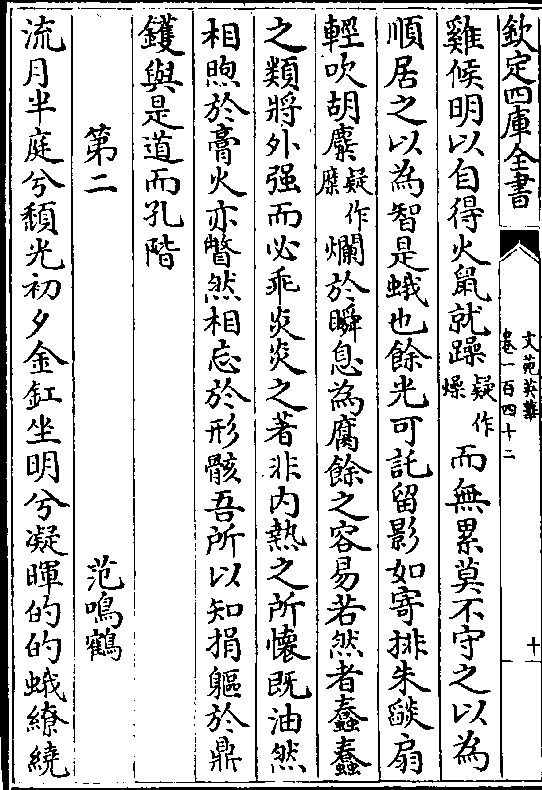 欽定四庫全書
文苑英華
卷一百四十二
十
雞候明以自得火鼠就躁疑作燥而無累莫不守之以為
順居之以為智是蛾也餘光可託留影如寄排朱燄扇
輕吹胡麋疑作糜爛於瞬息為腐餘之容易若然者蠢蠢
之類將外强而必乖炎炎之著非内熱之所懷既油然
相喣於膏火亦瞥然相忘於形骸吾所以知捐軀於鼎
鑊與是道而孔階
第二 范鳴鶴
流月半庭兮頽光初夕金釭坐明兮凝暉的的蛾繚繞